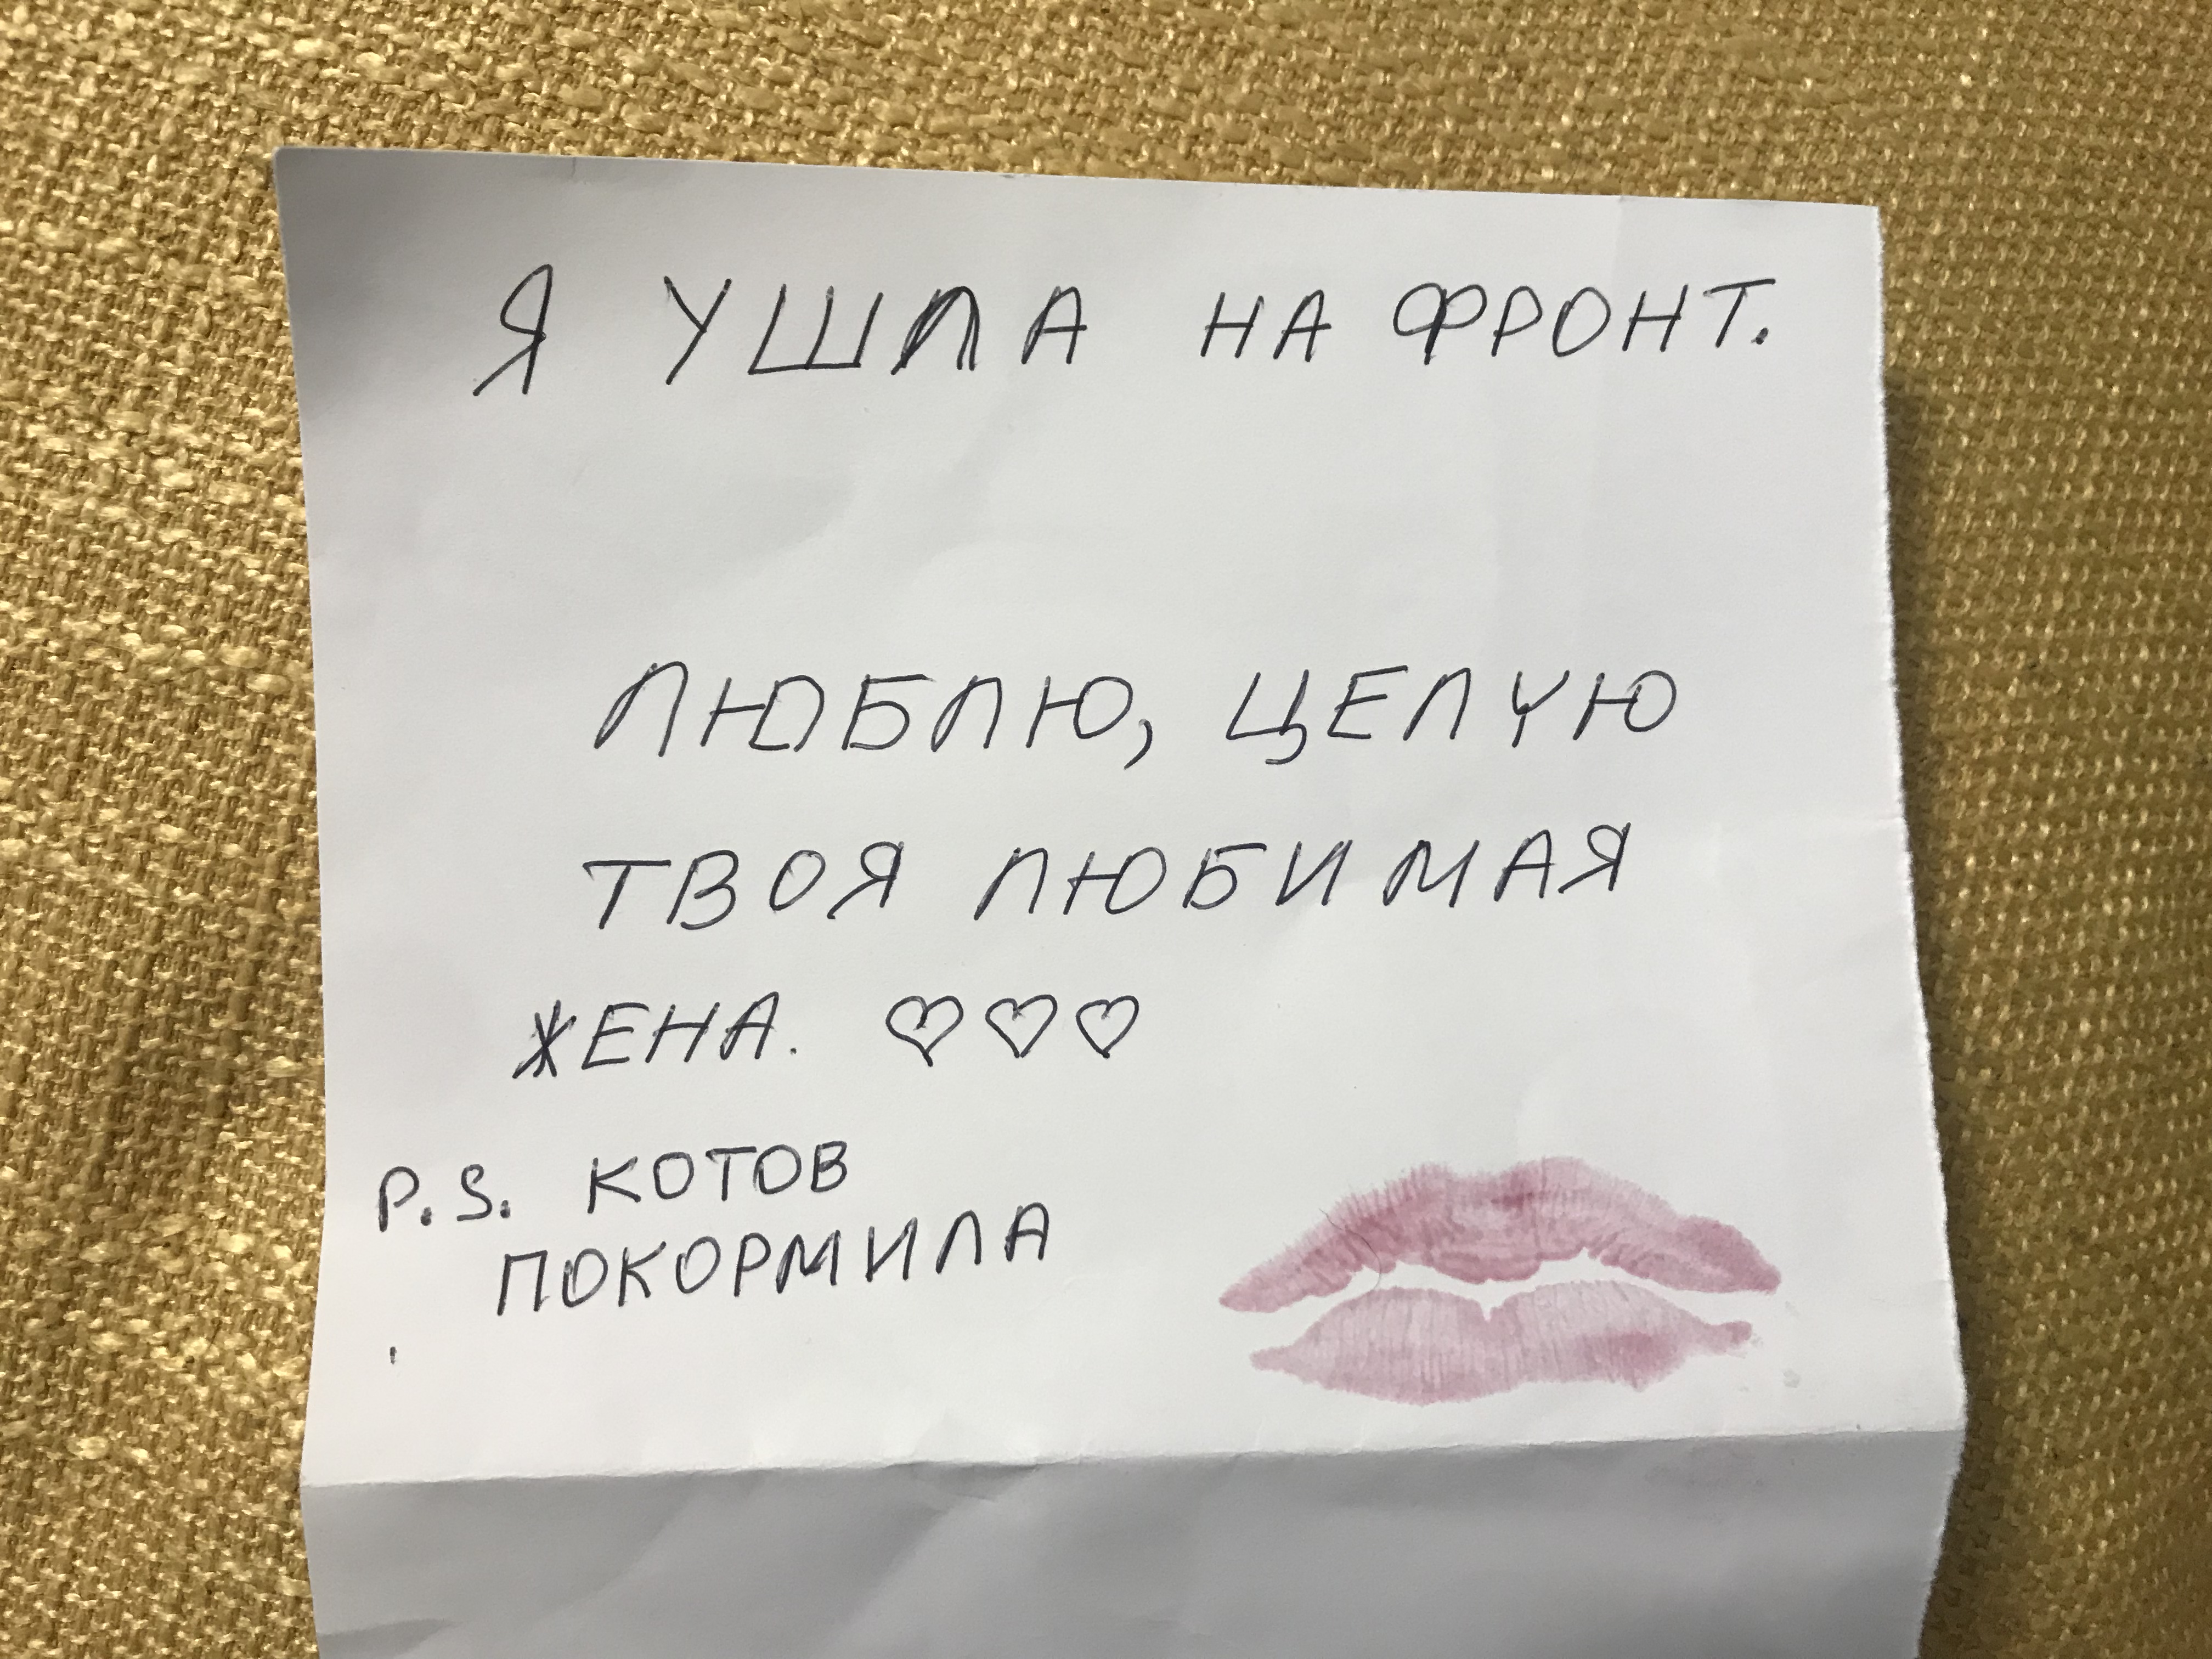 Я УШЛА НА ФРОНТ.
ЛЮБЛЮ, ЦЕЛУЮ
ТВОЯ ЛЮБИМАЯ
ЖЕНА. ♡♡♡
P.S. КОТОВ
ПОКОРМИЛА